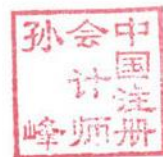 中国注册
会计师
孙峰